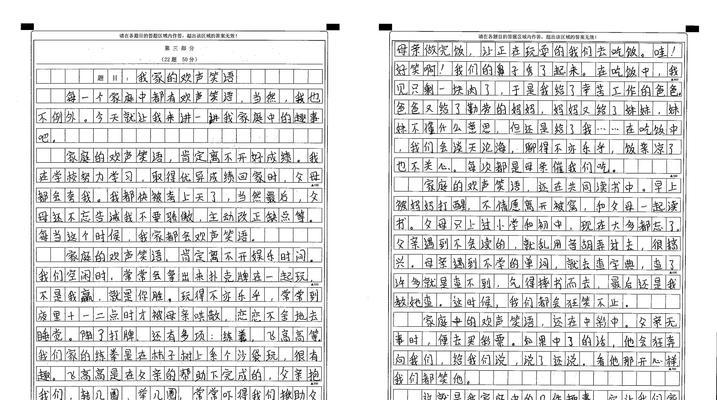 请在各题目的答题区域内作答，超出该区域的答案无效！
第三部分
(22题 50分)
题目：我家的欢声笑语
每一个家庭中都有欢声笑语，当然，我也
不例外。今天就让我来讲一讲我家庭中的趣事
吧。
家庭的欢声笑语，肯定离不开好成绩。我
在学校努力学习，取得优异成绩回家时，父母
都会夸我。我都快被夸上天了，当然最后，父
母还不忘告诫我不要骄傲，主动改正缺点等。
每当这个时候，我家都会欢声笑语。
家庭的欢声笑语，肯定离不开娱乐时间。
我们空闲时，常常会拿出来扑克牌在一起玩，
不是我赢，就是你胜。玩得不亦乐乎，常常到
夜里十一二点时才被母亲哄散，恋恋不舍地去
睡觉。除了打牌，还有多项：练拳，飞高高等
我们家的练拳是在柿子树上系个沙袋玩，很有
趣。飞高高是在父亲的帮助下完成的，父亲抱
我们，转几圈，举几圈，常常吓得我们抱
请在各题目的答题区域内作答，超出该区域的答案无效！
母亲做完饭，让正在玩耍的我们去吃饭。哇！
好笑啊！我们的鼻子专了起来。在吃饭中，我
见只剩一块肉了，于是我给了辛苦工作的爸爸
爸爸又给了勤劳的妈妈，妈妈又给了妹妹，妹
妹不懂什么意思，但还是给了我……在吃饭中
，我们会谈天说海，聊得不亦乐乎，饭菜凉了
也不关心。每次都是母亲催我们吃。
家庭的欢声笑语，还在共同读书中。早上
被妈妈打醒，不情愿离开被窝，和父母一起读
书。父母只上过小学和初中，现在大多都忘了。
父亲遇到不会读的，就乱用音胡弄过去，很搞
兴。母亲遇到不学的单词，就去查字典，查了
许多就是查不到，气得摔书而去，最后还是我
教她查。这时候，我们都会狂笑不止。
家庭中的欢声笑语，还在中彩中。父亲无
事时，便去买彩票。如果中了的话，他会狂奔
向我们，给我们说，说了还说。看他那开心样
我们都笑他。
这就是我家庭中的几件趣事，它让我们家